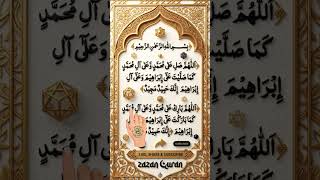 ﴿ بِسْمِ اللهِ الرَّحْمٰنِ الرَّحِيْمِ ﴾
اَللّٰهُمَّ صَلِّ عَلٰى مُحَمَّدٍ وَّعَلٰى اٰلِ مُحَمَّدٍ
كَمَا صَلَّيْتَ عَلٰى اِبْرَاهِيْمَ وَعَلٰى اٰلِ
اِبْرَاهِيْمَ اِنَّكَ حَمِيْدٌ مَّجِيْدٌ
اَللّٰهُمَّ بَارِكْ عَلٰى مُحَمَّدٍ وَّعَلٰى اٰلِ
كَمَا بَارَكْتَ عَلٰى اِبْرَاهِيْمَ وَعَلٰى اٰلِ
اِبْرَاهِيْمَ اِنَّكَ حَمِيْدٌ
LIKE, SHARE & SUBSCRIBE
zazan Quran